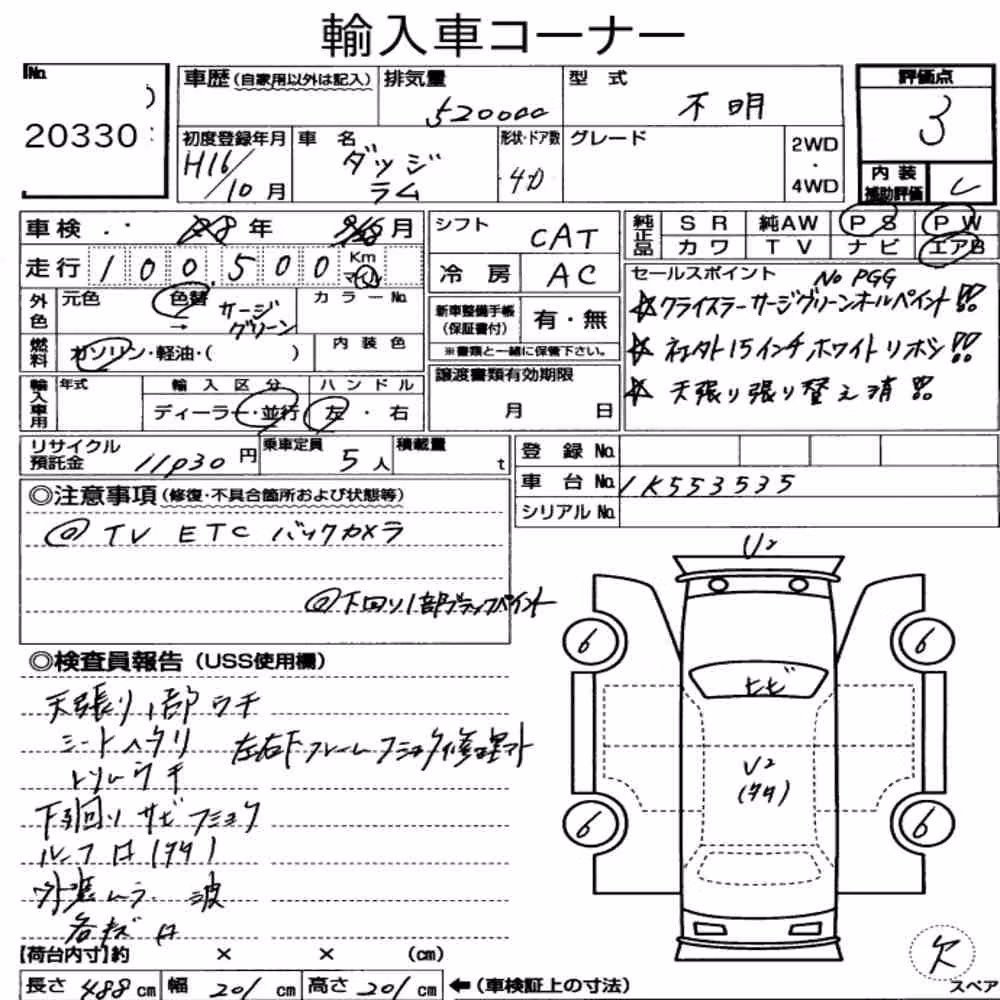 輸入車コーナー
No. 20330
車歴(自家用以外は記入)
排気量 5200cc
型式 不明
評価点 3
初度登録年月 H16/10月
車名 ダッジ ラム
形状・ドア数 4D
グレード
2WD・4WD
内装補助評価 C
車検 年 月
シフト CAT
純正品 SR 純AW PS PW
カワ TV ナビ エアB
走行 100,500 Km マイル
冷房 AC
外色 元色 色替→ サージグリーン カラーNo.
新車整備手帳(保証書付) 有・無
※書類と一緒に保管下さい。
セールスポイント No PGG
☆クライスラーサージグリーンオールペイント!!
☆社外15インチホワイトリボン!!
☆天張り張り替え済!!
燃料 ガソリン・軽油・( ) 内装色
譲渡書類有効期限 月 日
輸入車用 年式 輸入区分 ディーラー・並行 ハンドル 左・右
リサイクル預託金 11030円
乗車定員 5人
積載量 t
登録No.
車台No. 1K553535
シリアルNo.
◎注意事項(修復・不具合箇所および状態等)
◎TV ETC バックカメラ
◎下回り1部ブラックペイント
U2
6 6
ヒビ
U2
(タタ)
6 6
◎検査員報告(USS使用欄)
天張り1部ウキ
シートハタリ
左右Fフレームフショク修理アト
トリムウキ
下回りサビフショク
ルーフ凹(タタ)
外装ムラ 波
各キズ凹
【荷台内寸】約 × × (cm)
長さ 488cm 幅 201cm 高さ 201cm ←(車検証上の寸法)
欠
スペア